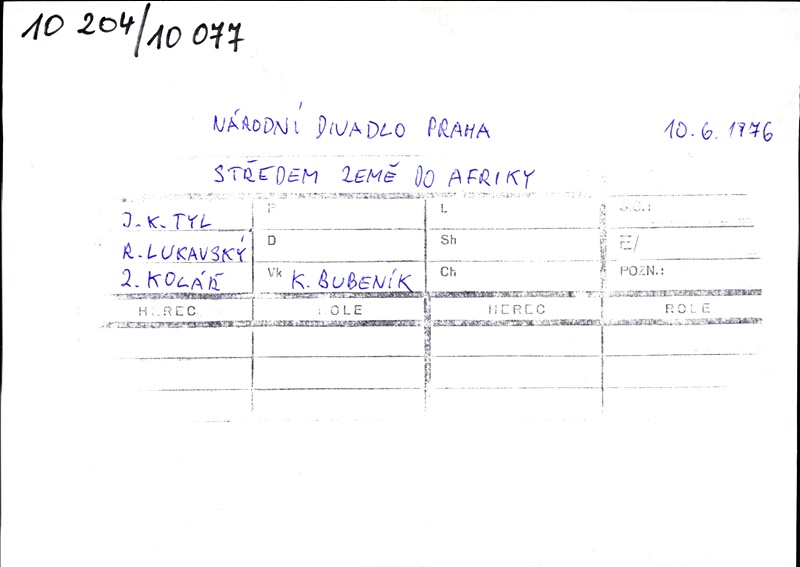 10 204/10 077
NÁRODNÍ DIVADLO PRAHA 10.6.1976
STŘEDEM ZEMĚ DO AFRIKY
J.K. TYL P L
R. LUKAVSKÝ D Sh E/
Z. KOLÁŘ Vk K. BUBENÍK Ch POZN.:
HEREC ROLE HEREC ROLE